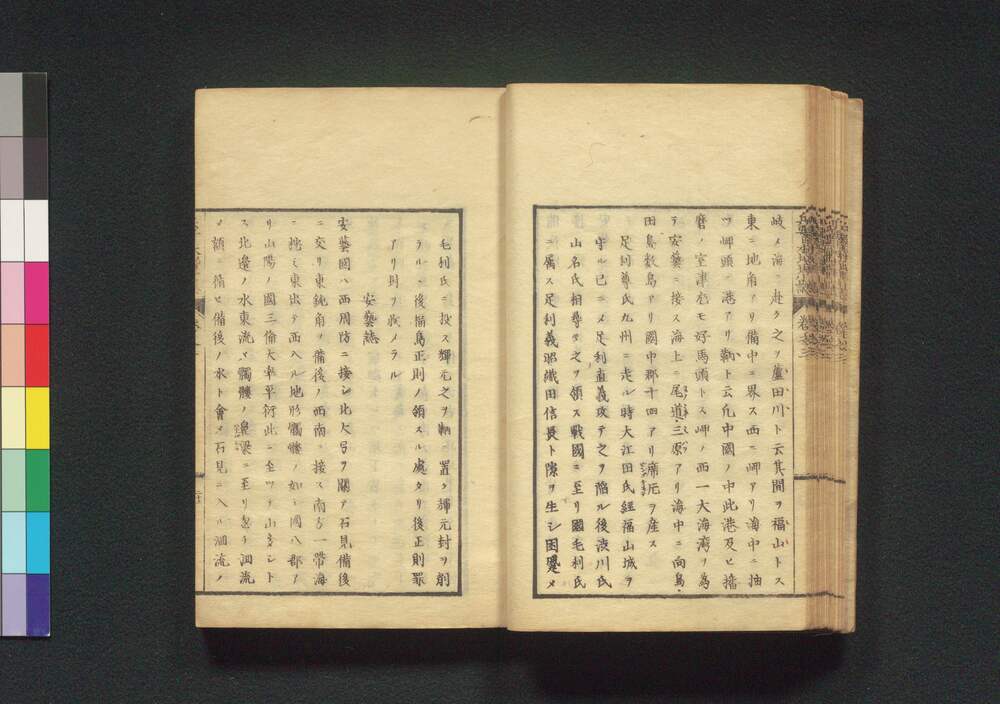 岐〆海ニ赴ク之ヲ蘆田川ト云其間ヲ福山トス
東ニ地角アリ備中ニ界ス西ニ岬アリ海中ニ抽
ツ岬頭ニ港アリ鞆ト云凡中國ノ中此港及ヒ播
磨ノ室津尤モ好馬頭トス岬ノ西一大海湾ヲ為
テ安藝ニ接ス海上ニ尾道三原アリ海中ニ向島
田島數島アリ國中郡十四アリ席ヲ産ス
足利尊氏九州ニ走ル時大江田氏經福山城ヲ
守ル已ニ〆足利直義攻テ之ヲ陥ル後渋川氏
山名氏相尋テ之ヲ領ス戰國ニ至リ國毛利氏
ニ属ス足利義昭織田信長ト隙ヲ生シ困〆
毛利氏ニ投ス輝元之ヲ鞆ニ置ク輝元封ヲ削
ラル丶後福島正則ノ領スル處タリ後正則罪
アリ封ヲ收メラル
安藝誌
安藝國ハ西周防ニ接シ北大弓ヲ關テ石見備後
ニ交リ東鈍角ヲ備後ノ西南ニ接ス南ハ一帶海
ニ拠ミ東出テ西入ル地形髑髏ノ如シ國八郡ア
リ山陽ノ國三備大率平衍此ニ至ツテ山多シト
ス北邉ノ水東流〆髑髏ノ鼻梁ニ至リ忽チ洄流
〆額ニ循ヒ備後ノ水ト會〆石見ニ入ル洄流ノ